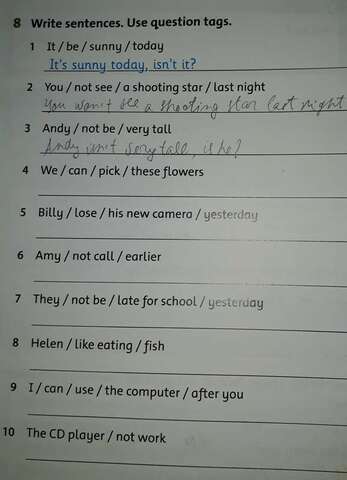 8 Write sentences. Use question tags.
1 It / be / sunny / today
It's sunny today, isn't it?
2 You / not see / a shooting star / last night
You won't see a shooting star last night
3 Andy / not be / very tall
Andy isn't very tall, is he?
4 We / can / pick / these flowers
5 Billy / lose / his new camera / yesterday
6 Amy / not call / earlier
7 They / not be / late for school / yesterday
8 Helen / like eating / fish
9 I / can / use / the computer / after you
10 The CD player / not work